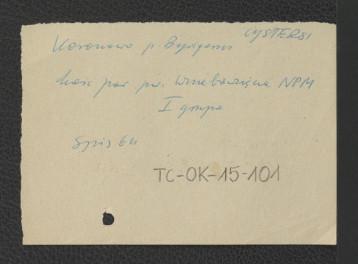 CYSTERSI
Koronowo p. Bydgoszcz
kość par pw. Wniebowzięcia NPM
I grupa
Spis 64
TC-OK-15-101